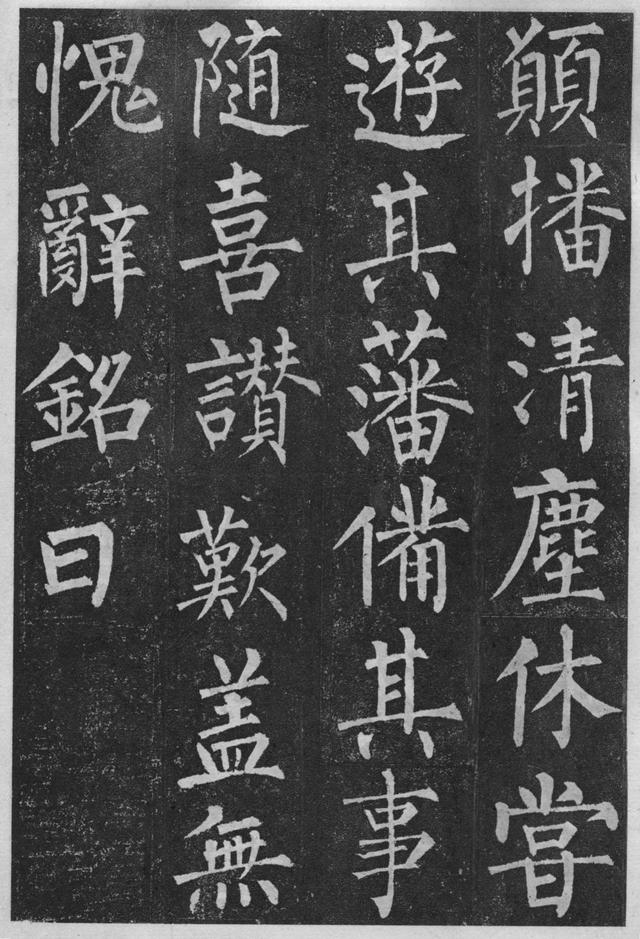 顛播清塵休甞
遊其藩備其事
随喜讃歎盖無
愧辭銘曰